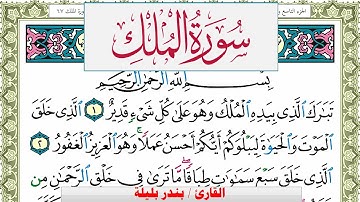 الجزء التاسع و
سورة الملك ٦٧
سُورَةُ المُلْكِ
بِسْمِ اللَّهِ الرَّحْمَٰنِ الرَّحِيمِ
تَبَارَكَ الَّذِي بِيَدِهِ الْمُلْكُ وَهُوَ عَلَىٰ كُلِّ شَيْءٍ قَدِيرٌ ١ الَّذِي خَلَقَ
الْمَوْتَ وَالْحَيَوٰةَ لِيَبْلُوَكُمْ أَيُّكُمْ أَحْسَنُ عَمَلًا ۚ وَهُوَ الْعَزِيزُ الْغَفُورُ ٢
الَّذِي خَلَقَ سَبْعَ سَمَٰوَٰتٍ طِبَاقًا ۖ مَّا تَرَىٰ فِي خَلْقِ الرَّحْمَٰنِ مِن
القارئ / بندر بليلة